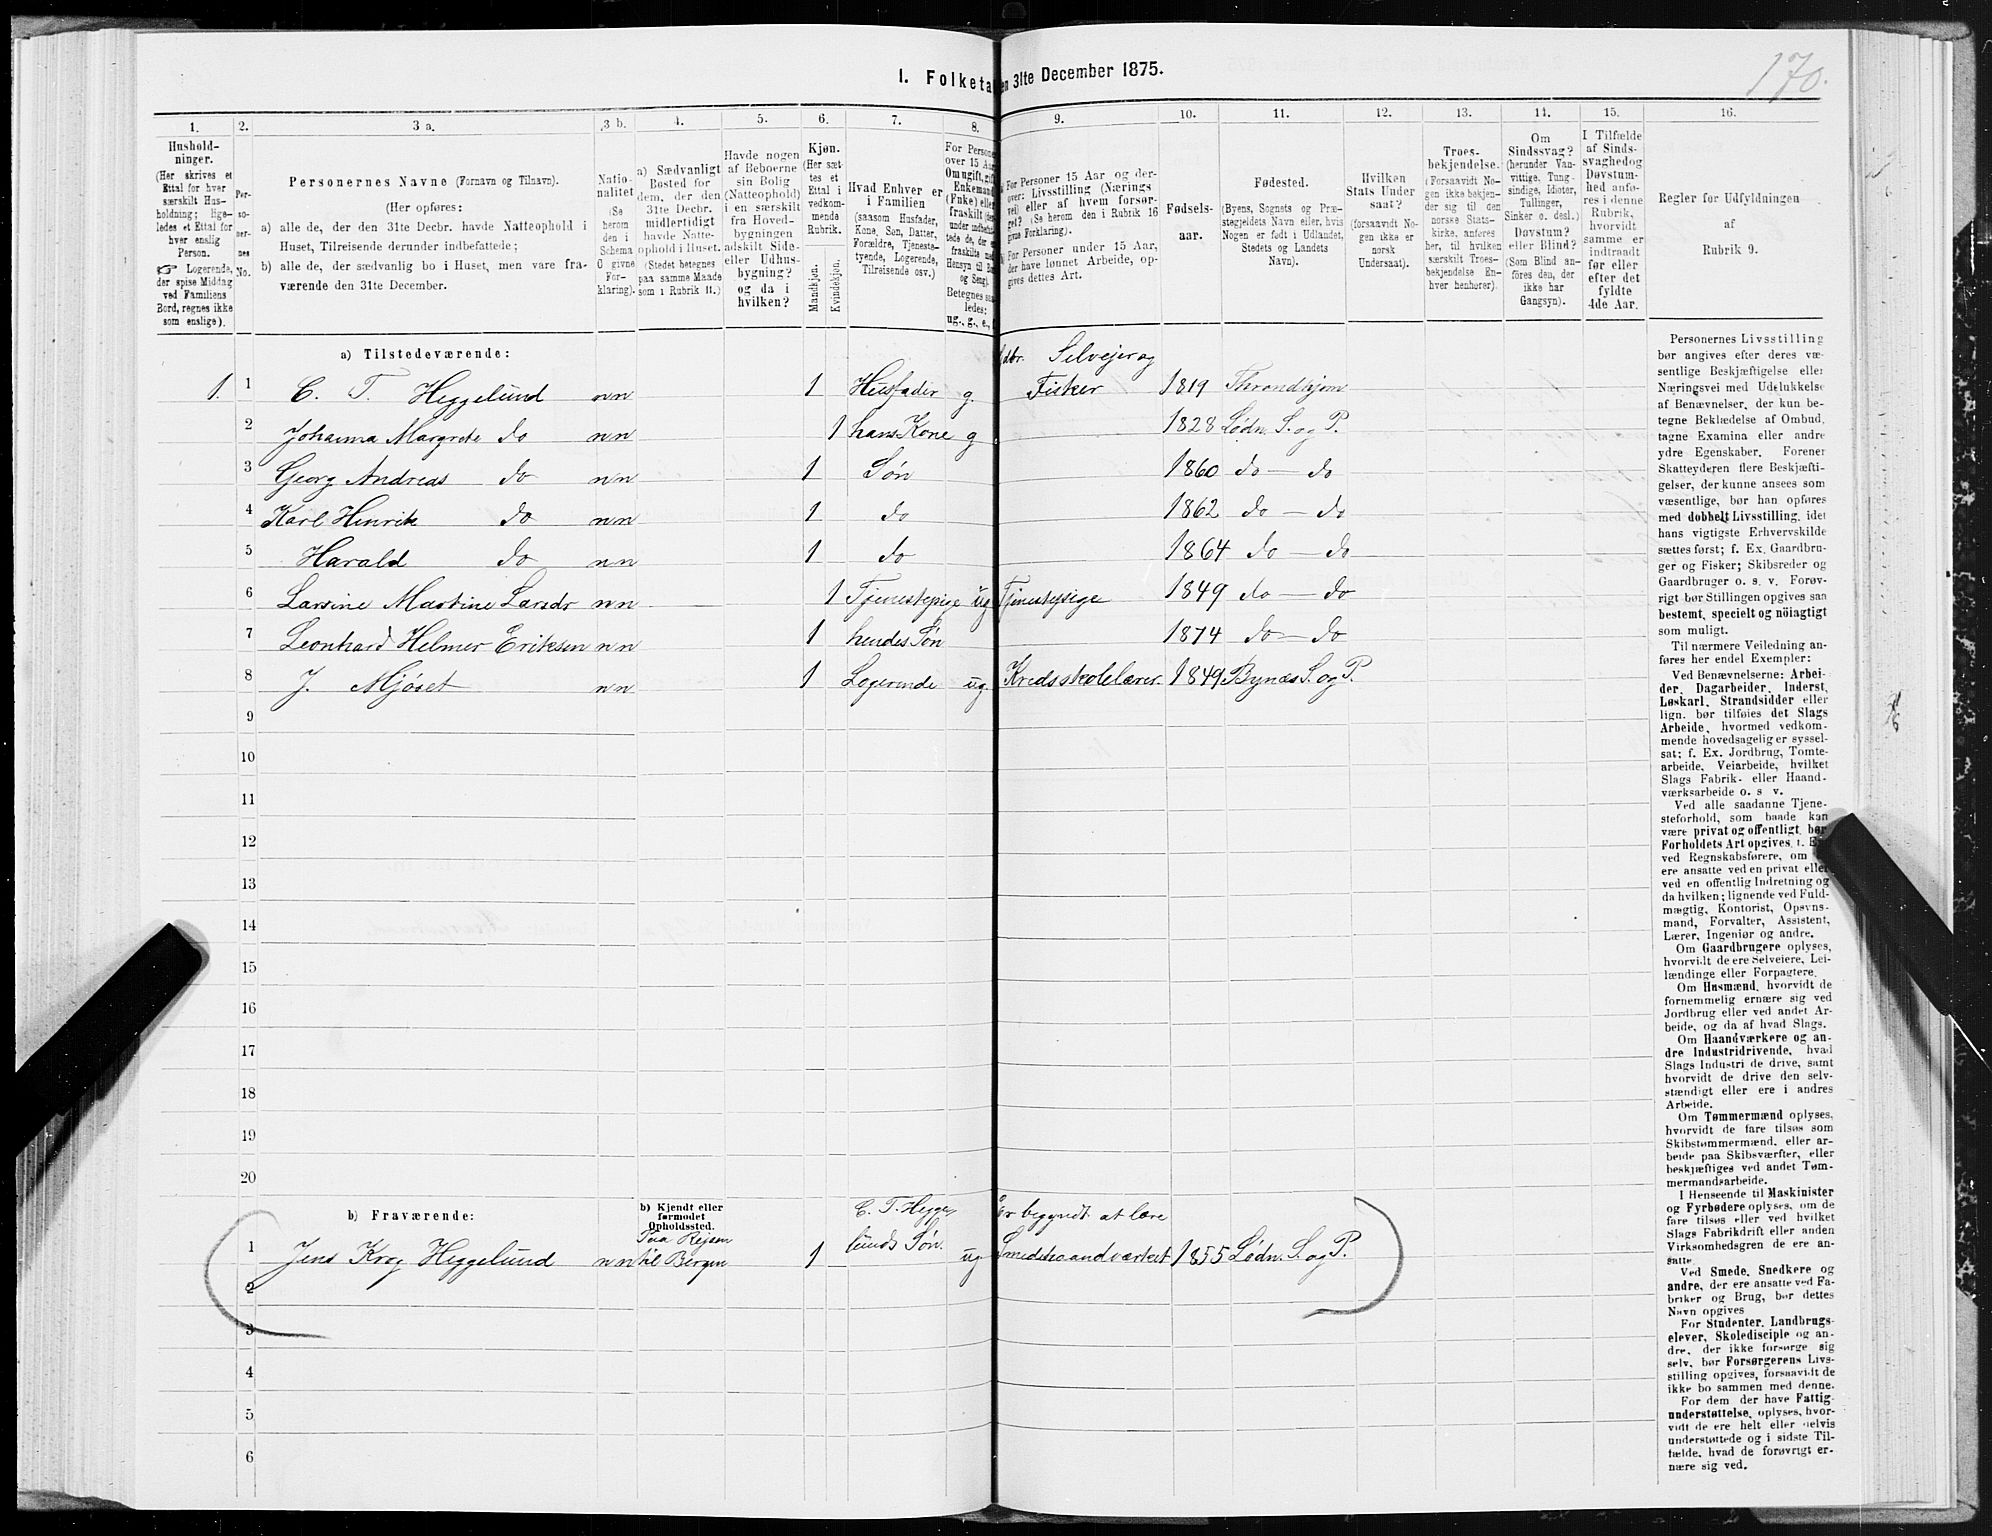 170.
I. Folketa
en 31te December 1875.
1. 2. 3 a. 3 b. 4. 5. 6. 7. 8. 9. 10. 11. 12. 13. 14. 15. 16.
Hushold-
ninger.
(Her skrives et
Ettal for hver
særskilt Hus-
holdning; lige-
ledes et Ettal for
hver enslig
Person.
☞ Logerende,
der spise Middag
ved Familiens
Bord, regnes ikke
som enslige).
Per-
so-
ner-
nes
No.
Personernes Navne (Fornavn og Tilnavn).
(Her opføres:
a) alle de, der den 31te Decbr. havde Natteophold i
Huset, Tilreisende derunder indbefattede;
b) alle de, der sædvanlig bo i Huset, men vare fra-
værende den 31te December.
Natio-
nalitet
(Se
herom
den i
Schema
0 givne
For-
klaring).
a) Sædvanligt
Bosted for
dem, der den
31te Decbr.
midlertidigt
havde Natte-
ophold i Huset.
(Stedet betegnes
paa samme Maade
som i Rubrik 11.)
Havde nogen
af Beboerne
sin Bolig
(Natteophold)
i en særskilt
fra Hoved-
bygningen
adskilt Side-
eller Udhus-
bygning?
og da i
hvilken?
Kjøn.
(Her sæt-
tes et
Ettal i
vedkom-
mende
Rubrik.
Mandkjøn.
Kvindekjøn.
Hvad Enhver er
i Familien
(saasom Husfader,
Kone, Søn, Datter,
Forældre, Tjeneste-
tyende, Logerende,
Tilreisende osv.)
For Persone
over 15 Aar
Om ugift, gift
Enkemand
(Fnke) eller
fraskilt
Betegnes saa
ledes:
ug., g., e.,
For Personer 15 Aar og der-
over: Livsstilling (Nærings
vei) eller af hvem forsør-
get? (Se herom den i Rubrik 16
givne Forklaring).
For Personer under 15 Aar,
der have lønnet Arbeide, op-
gives dettes Art.
Fødsels-
aar.
Fødested.
(Byens, Sognets og Præ-
stegjeldets Navn eller, hvis
Nogen er født i Udlandet,
Stedets og Landets
Navn).
Hvilken
Stats Under
saat?
(forsaavidt No-
gen ikke er
norsk
Undersaat).
Troes-
bekjendelse.
(Forsaavidt No-
gen ikke bekjen-
der sig til den
norske Stats-
kirke, anføres
her, til hvilken
særskilt Troes-
bekjendelse En-
hver henhører).
Om
Sindssvag?
(herunder Van-
vittige, Tung-
sindige, Idioter,
Sinker o. desl.)
Døvstum?
eller Blind?
(Som Blind an-
føres den, der
ikke har
Gangsyn).
I Tilfælde
af Sinds-
svaghedog
Døvstum-
hed anfø-
res i denne
Rubrik,
hvorvidt
samme er
indtraadt
før eller
efter det
fyldte
4de Aar.
Regler for Udfyldningen
af
Rubrik 9.
a) Tilstedeværende:
dbr. Selvejer og
1. 1 C. T. Heggelund nn 1 Husfader g. Fisker 1819 Throndhjem
2 Johanna Margrete do nn 1 hans Kone g 1828 Lødn. S. og P.
3 Georg Andreas do nn 1 Søn 1860 do — do
4 Karl Hinrik do nn 1 do 1862 do — do
5 Harald do nn 1 do 1864 do — do
6 Larsine Martine Larsdr nn 1 Tjenestepige ug Tjenestepige 1849 do — do
7 Leonhard Helmer Eriksen nn 1 hendes Søn 1874 do — do
8 J. Mjøset nn 1 Logerende ug Kredsskolelærer 1849 Bynæs S. og P.
9
10
11
12
13
14
15
16
17
18
19
20
b) Fraværende:
b) Kjendt eller
formodet
Opholdssted.
C. T. Hegge
lunds Søn.
Er begyndt at lære
Paa Rejsen
1 Jens Krog Heggelund nn til Bergen 1 ug Smedehaandværket 1855 Lødn. S. og P.
2
3
4
5
6
Personernes Livsstilling
bør angives efter deres væ-
sentlige Beskjæftigelse eller
Næringsvei med Udelukkelse
af Benævnelser, der kun be-
tegne Beklædelse af Ombud,
tagne Examina eller andre
ydre Egenskaber. Forener
Skatteyderen flere Beskjæfti-
gelser, der kunne ansees som
væsentlige, bør han opføres
med dobbelt Livsstilling, idet
hans vigtigste Erhvervskilde
sættes først; f. Ex. Gaardbru-
ger og Fisker; Skibsreder og
Gaardbruger o. s. v. Forøv-
rigt bør Stillingen opgives saa
bestemt, specielt og nöiagtigt
som muligt.
Til nærmere Veiledning an-
føres her endel Exempler:
Ved Benævnelserne: Arbei-
der, Dagarbeider, Inderst,
Løskarl, Strandsidder eller
lign. bør tilføies det Slags
Arbeide, hvormed vedkom-
mende hovedsagelig er syssel-
sat; f. Ex. Jordbrug, Tomte-
arbeide, Veiarbeide, hvilket
Slags Fabrik- eller Haand-
værksarbeide o. s v.
Ved alle saadanne Tjene-
steforhold, som baade kan
være privat og offentligt, bør
Forholdets Art opgives, f. Ex
ved Regnskabsførere, om
ere ansatte ved en privat eller
ved en offentlig Indretning og
da hvilken; lignende ved Fuld-
mægtig, Kontorist, Opsyns-
mand, Forvalter, Assistent,
Lærer, Ingeniør og andre.
Om Gaardbrugere oplyses,
hvorvidt de ere Selveiere, Lei-
lændinge eller Forpagtere.
Om Husmænd, hvorvidt de
fornemmelig ernære sig ved
Jordbrug eller ved andet Ar-
beide, og da af hvad Slags.
Om Haandværkere og an-
dre Industridrivende, hvad
Slags Industri de drive, samt
hvorvidt de drive den selv-
stændigt eller ere i andres
Arbeide.
Om Tømmermænd oplyses,
hvorvidt de fare tilsøs som
Skibstømmermænd, eller ar-
beide paa Skibsværfter, eller
beskjæftiges ved andet Tøm-
mermandsarbeide.
I Henseende til Maskinister
og Fyrbødere oplyses, om de
fare tilsøs eller ved hvilket
Slags Fabrikdrift eller anden
Virksomhedsgren de ere an-
satte.
Ved Smede, Snedkere og
andre, der ere ansatte ved Fa-
briker og Brug, bør dettes
Navn opgives
For Studenter, Landbrugs-
elever, Skoledisciple og an-
dre, der ikke forsørge sig
selv, bør Forsørgerens Livs-
stilling opgives, forsaavidt de
ikke bo sammen med denne.
For dem der have Fattig-
understøttelse, oplyses, hvor-
vidt de ere helt eller delvis
understøttede og i sidste Til-
fælde, hvad de forøvrigt er-
nære sig ved.